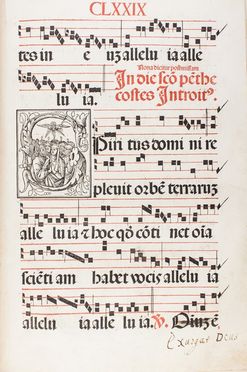 CLXXIX
tes in e uʒ allelu ia alle
Nona dicitur postmissam
lu ia.
In die scō pēthe
costes Introitꝰ.
Piri tus domi ni re
pleuit orbē terraruʒ
alle lu ia ⁊ hoc qđ cōti net oīa
sciēti am habet vocis allelu ia
allelu ia alle lu ia. V. Oīuʒ ē
Exurgat Deus